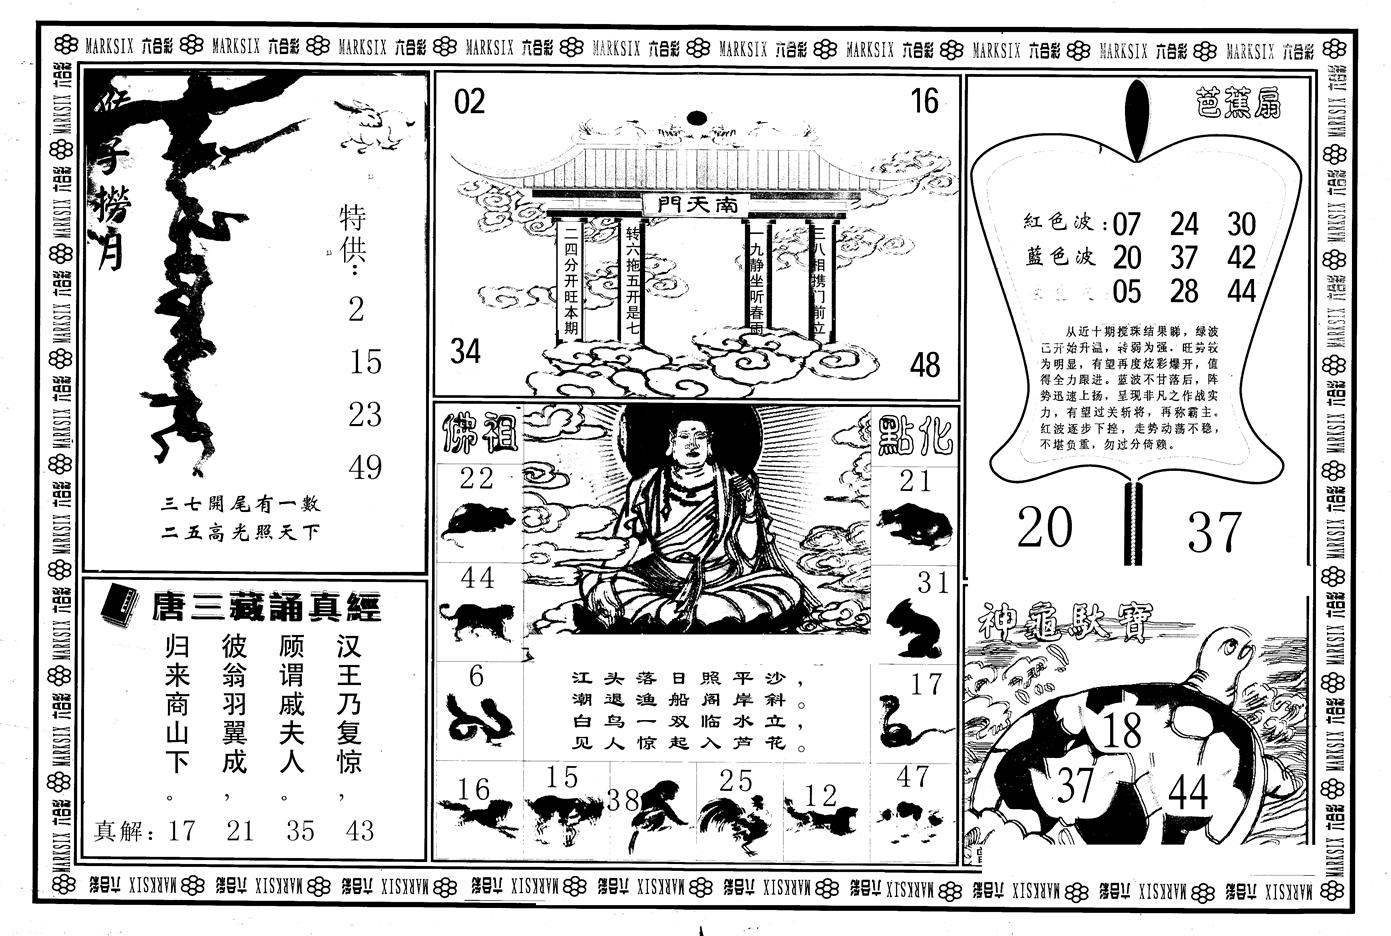 MARKSIX 六合彩 MARKSIX 六合彩 MARKSIX 六合彩 MARKSIX 六合彩 MARKSIX 六合彩 MARKSIX 六合彩 MARKSIX 六合彩 MARKSIX 六合彩 MARKSIX 六合彩 MARKSIX
猴子撈月
特供：
2
15
23
49
三七開尾有一數
二五高光照天下
唐三藏誦真經
汉王乃复惊，
顾谓戚夫人。
彼翁羽翼成，
归来商山下。
真解：17 21 35 43
02
16
南天門
三八相携门前立
一九静坐听春雨
转六拖五开是七
二四分开旺本期
34
48
佛祖
點化
22
21
44
31
6
17
江头落日照平沙，
潮退渔船阁岸斜。
白鸟一双临水立，
见人惊起入芦花。
16
15
38
25
12
47
芭蕉扇
紅色波：07 24 30
藍色波 20 37 42
05 28 44
从近十期搅珠结果睇，绿波
已开始升温，转弱为强，旺势较
为明显，有望再度炫彩爆开，值
得全力跟进。蓝波不甘落后，阵
势迅速上扬，呈现非凡之作战实
力，有望过关斩将，再称霸主。
红波逐步下挫，走势动荡不稳，
不堪负重，勿过分倚赖。
20
37
神龜馱寶
18
37
44